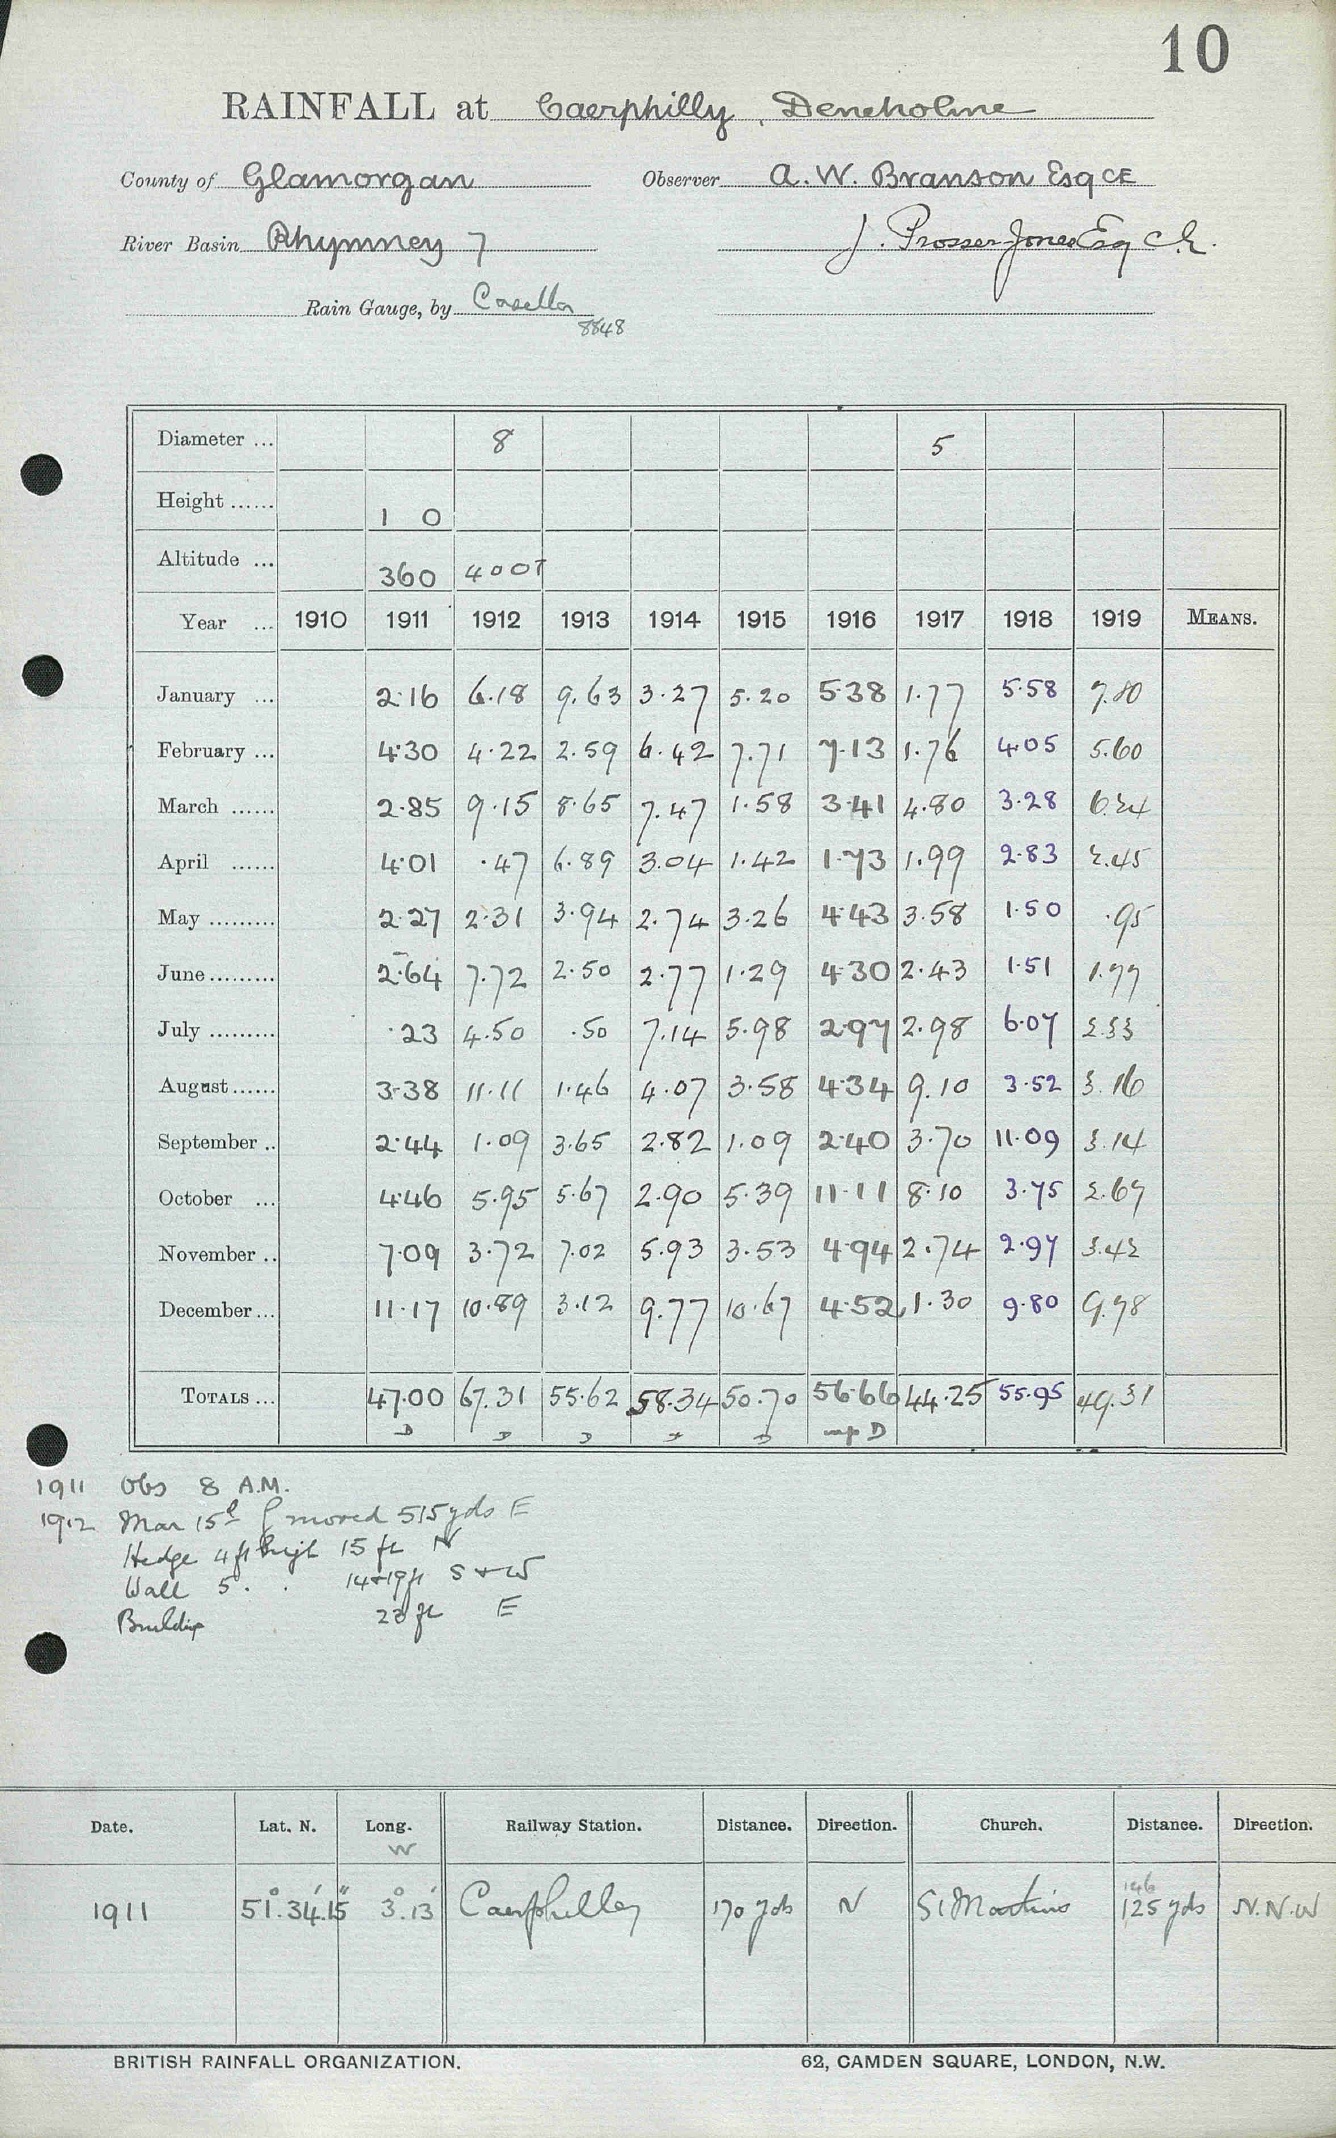 10
RAINFALL at Caerphilly, Deneholme
County of Glamorgan Observer A. W. Branson Esq CE
River Basin Rhymney 7 J. Prosser Jones Esq C.E.
Rain Gauge, by Casella
8848
Diameter ... 8 5
Height ...... 1 0
Altitude ... 360 400T
Year ... 1910 1911 1912 1913 1914 1915 1916 1917 1918 1919 MEANS.
January ... 2·16 6.18 9.63 3.27 5.20 5·38 1.77 5·58 7.80
February ... 4·30 4.22 2.59 6.42 7.71 7·13 1.76 4·05 5.60
March ...... 2·85 9.15 8.65 7.47 1.58 3·41 4.80 3·28 6.24
April ...... 4·01 .47 6.89 3.04 1.42 1·73 1.99 2·83 2.45
May ......... 2·27 2.31 3.94 2.74 3.26 4·43 3.58 1·50 .95
June ......... 2·64 7.72 2.50 2.77 1.29 4·30 2.43 1·51 1.77
July ......... ·23 4.50 .50 7.14 5.98 2·97 2.98 6·07 2.33
August ...... 3·38 11.11 1.46 4.07 3.58 4·34 9.10 3·52 3.16
September .. 2·44 1.09 3.65 2.82 1.09 2·40 3.70 11·09 3.14
October ... 4·46 5.95 5.67 2.90 5.39 11·11 8.10 3·75 2.67
November .. 7·09 3.72 7.02 5.93 3.53 4·94 2.74 2·97 3.42
December ... 11·17 10.89 3.12 9.77 10.67 4·52 1.30 9·80 9.78
TOTALS ... 47·00 67.31 55.62 58.34 50.70 56·66 44.25 55·95 49.31
D D D D D
1911 Obs 8 A.M.
1912 Mar 15th moved 515 yds E
Hedge 4 ft high 15 ft N
Wall 5 . . 14 & 19 ft S & W
Building 23 ft E
Date. Lat. N. Long. Railway Station. Distance. Direction. Church. Distance. Direction.
W
146
1911 51°.34'.15" 3°.13' Caerphilly 170 yds N St Martins 125 yds N.N.W
BRITISH RAINFALL ORGANIZATION. 62, CAMDEN SQUARE, LONDON, N.W.